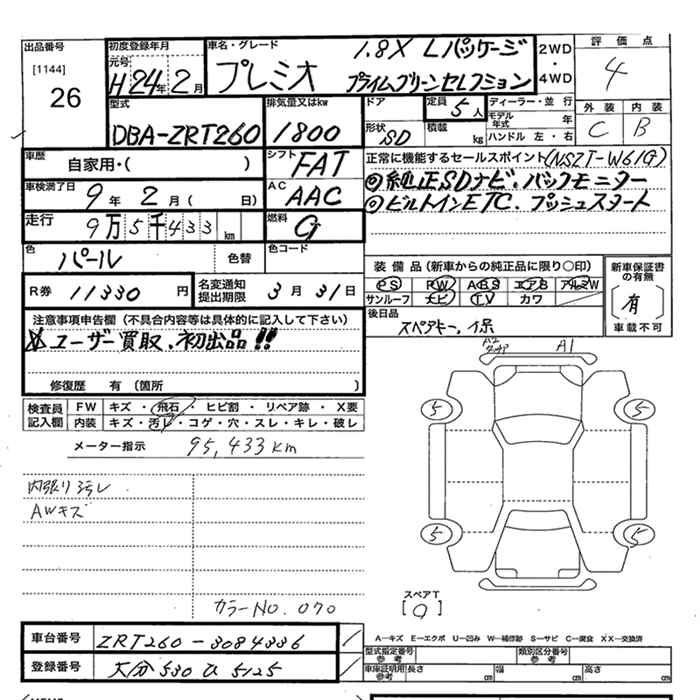 出品番号
[1144]
26
初度登録年月
元号
H24年2月
車名・グレード
プレミオ
1.8X Lパッケージ
プライムグリーンセレクション
2WD
・
4WD
評価点
4
外装 内装
C B
型式
DBA-ZRT260
排気量又はkw
1800
ドア
形状
SD
定員
5人
積載 kg
ディーラー・並 行
モデル年式 年
ハンドル 左・右
車歴
自家用・( )
シフト
FAT
車検満了日
9年 2月 ( 日)
AC
AAC
走行
9万5千433 km
燃料
G
色
パール
色替
色コード
正常に機能するセールスポイント(NSZT-W61G)
◎純正SDナビ、バックモニター
◎ビルトインETC、プッシュスタート
R券 11330 円
名変通知
提出期限
3月31日
装備品(新車からの純正品に限り○印)
PS PW ABS エアB アルミW
サンルーフ ナビ TV カワ
新車保証書
の有無
(有)
車載不可
後日品
スペアキー、保
注意事項申告欄(不具合内容等は具体的に記入して下さい)
ユーザー買取、初出品!!
修復歴 有〔箇所 〕
検査員
記入欄
FW キズ・飛石・ヒビ割・リペア跡・X要
内装 キズ・汚レ・コゲ・穴・スレ・キレ・破レ
メーター指示
95,433km
内張り汚レ
AWキズ
カラーNO.070
A2
A1
5
5
5
5
スペアT
[9]
車台番号
ZRT260-3084336
登録番号
大分530ひ5125
A―キズ E―エクボ U―凹み W―補修跡 S―サビ C―腐食 XX―交換済
型式指定番号
参考
類別区分番号
参考
車庫証明用
参考
長さ cm 幅 cm 高さ cm